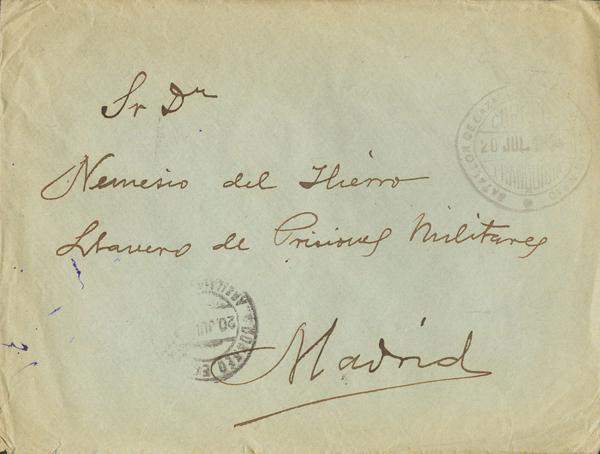 Sr Dn
Nemesio del Hierro
Llavero de Prisiones Militares
Madrid
BATALLON DE CAZA
20 JUL.
FRANQUICIA
CORREO
20 JUL